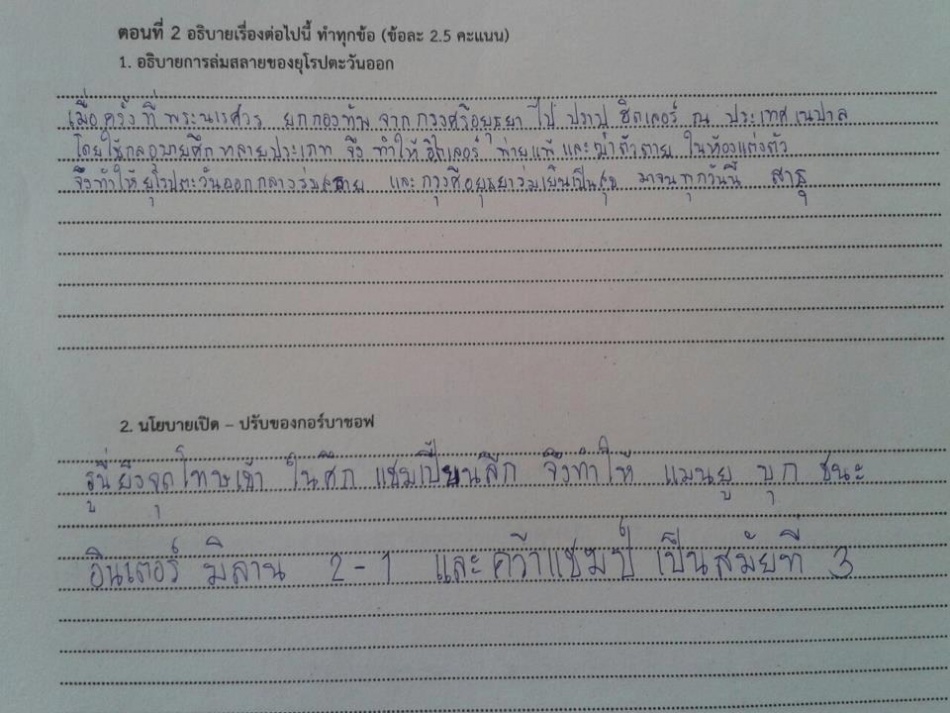 ตอนที่ 2 อธิบายเรื่องต่อไปนี้ ทำทุกข้อ (ข้อละ 2.5 คะแนน)
1. อธิบายการล่มสลายของยุโรปตะวันออก
เมื่อครั้งที่พระนเรศวร ยกกองทัพ จาก กรุงศรีอยุธยา ไป ปราบ ฮิตเลอร์ ณ ประเทศเนปาล
โดยใช้กลอุบายศึก หลายประเภท จึง ทำให้ฮิตเลอร์ พ่ายแพ้ และฆ่าตัวตาย ในห้องแต่งตัว
จึงทำให้ยุโรปตะวันออก และ กรุงศีอยุธยาร่มเย็นเป็นสุข มาจนทุกวันนี้ สาธุ
2. นโยบายเปิด – ปรับของกอร์บาชอฟ
รูนี่ยิงจุดโทษเข้า ในศึก แชมเปี้ยนลีก จึงทำให้ แมนยู บุก ชนะ
อินเตอร์ มิลาน 2-1 และคว้าแชมป์ เป็นสมัยที่ 3